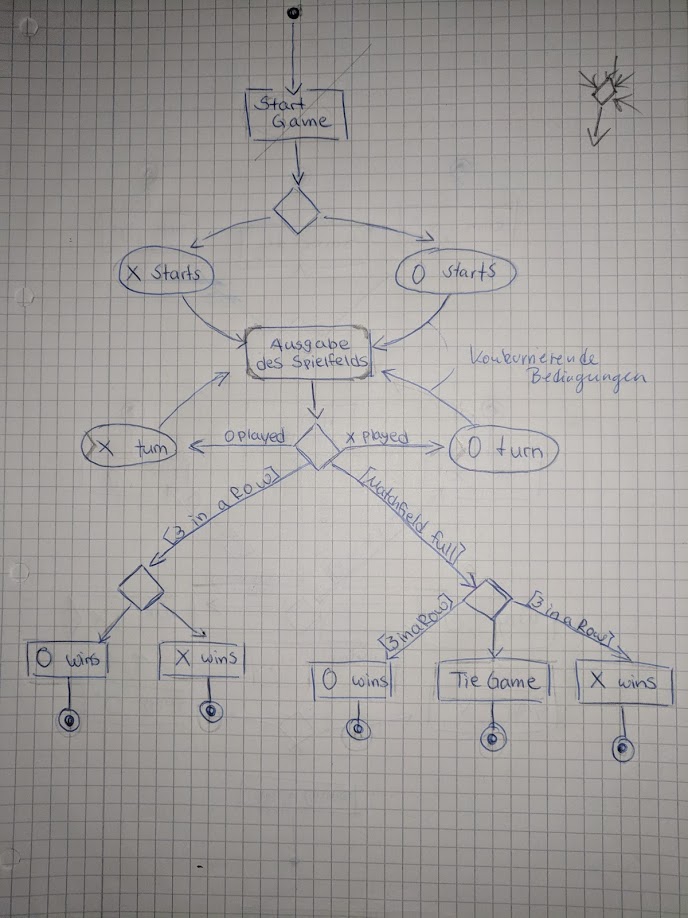 Start
Game
X starts
O starts
Ausgabe
des Spielfelds
Konkurrierende
Bedingungen
X turn
O played
X played
O turn
[3 in a Row]
[Matchfield full]
[3 in a Row]
[3 in a Row]
O wins
X wins
O wins
Tie Game
X wins